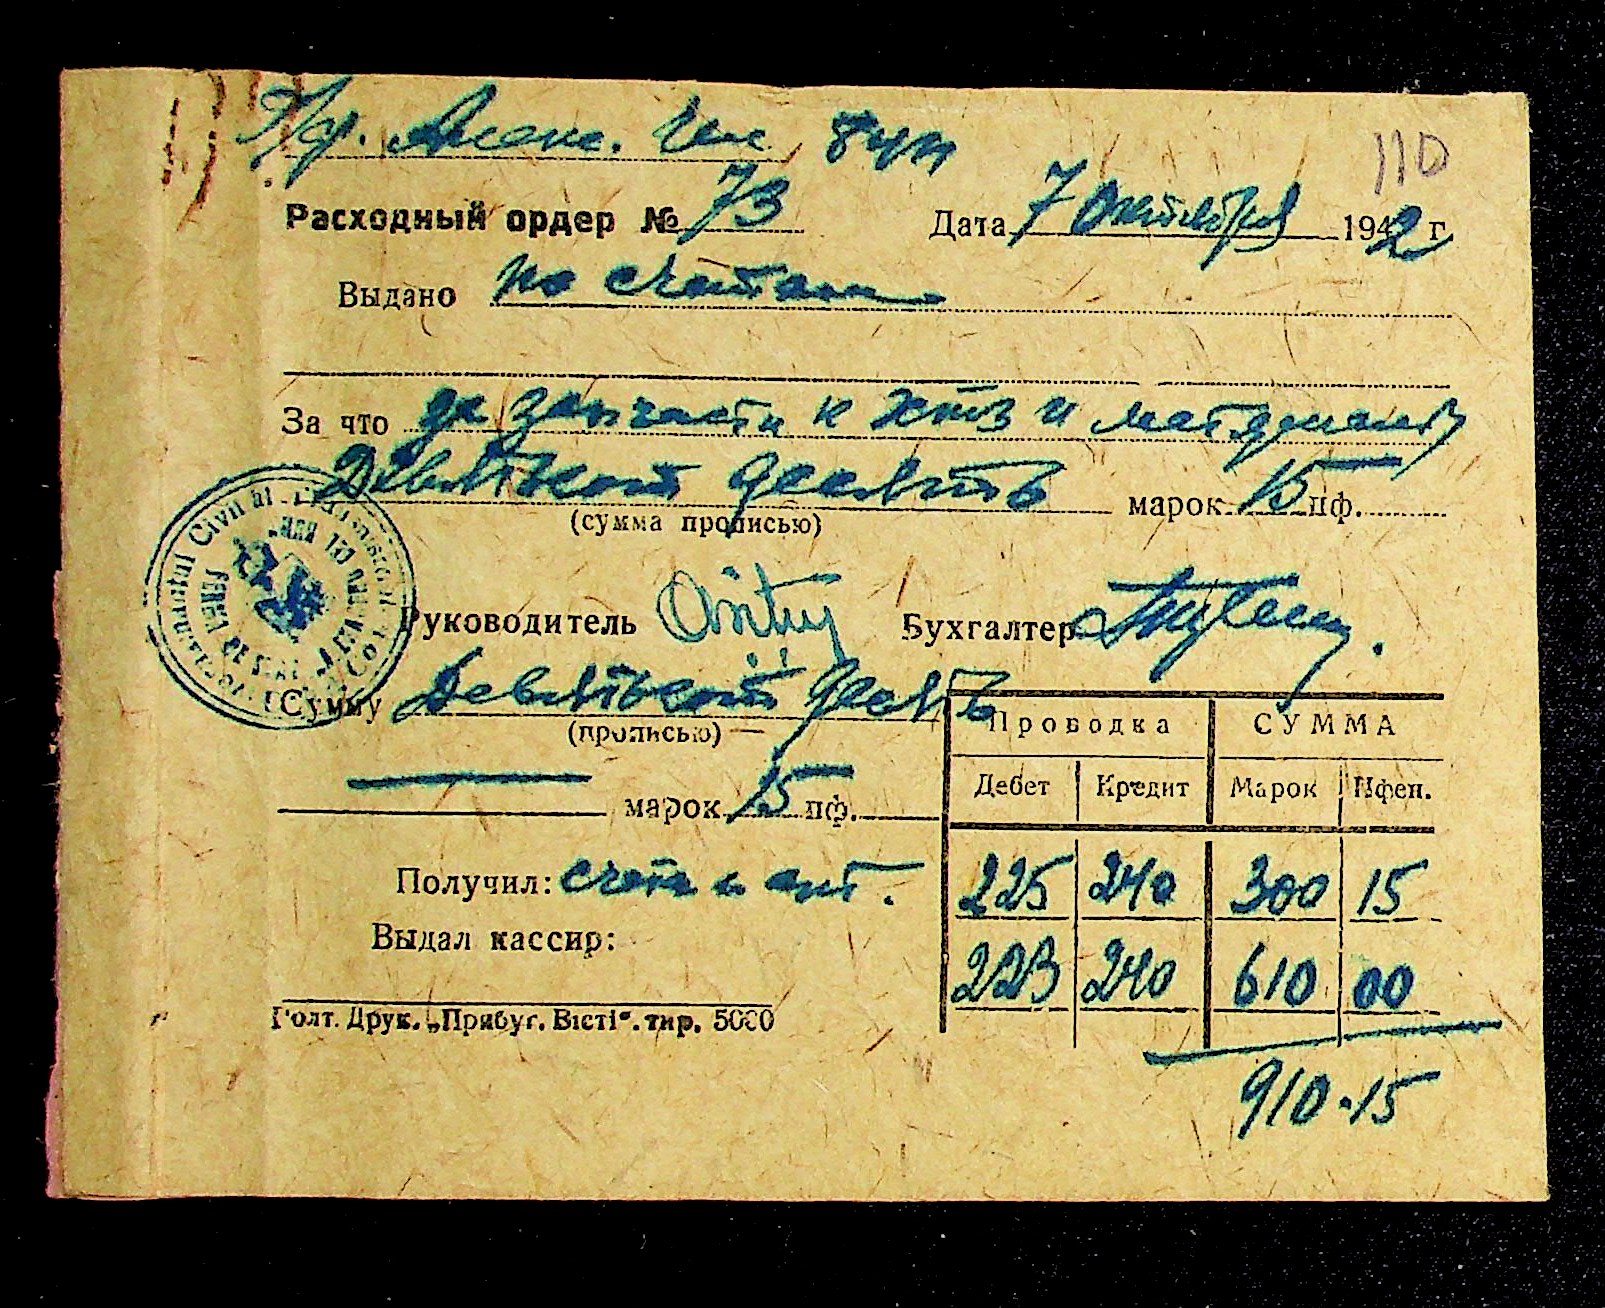 110
Расходный ордер № 73 Дата 7 Октября 1942 г
Выдано по счетам
За что за запчасти к хтз и материалы
Девятьсот десять марок 15 пф.
(сумма прописью)
Руководитель Бухгалтер
Сумму Девятьсот десять
(прописью)
марок 15 пф.
Проводка СУММА
Дебет Кредит Марок Пфен.
225 240 300 15
223 240 610 00
910.15
Получил: счета
Выдал кассир:
Голт. Друк. „Прибуг. Вісті“. тир. 5000